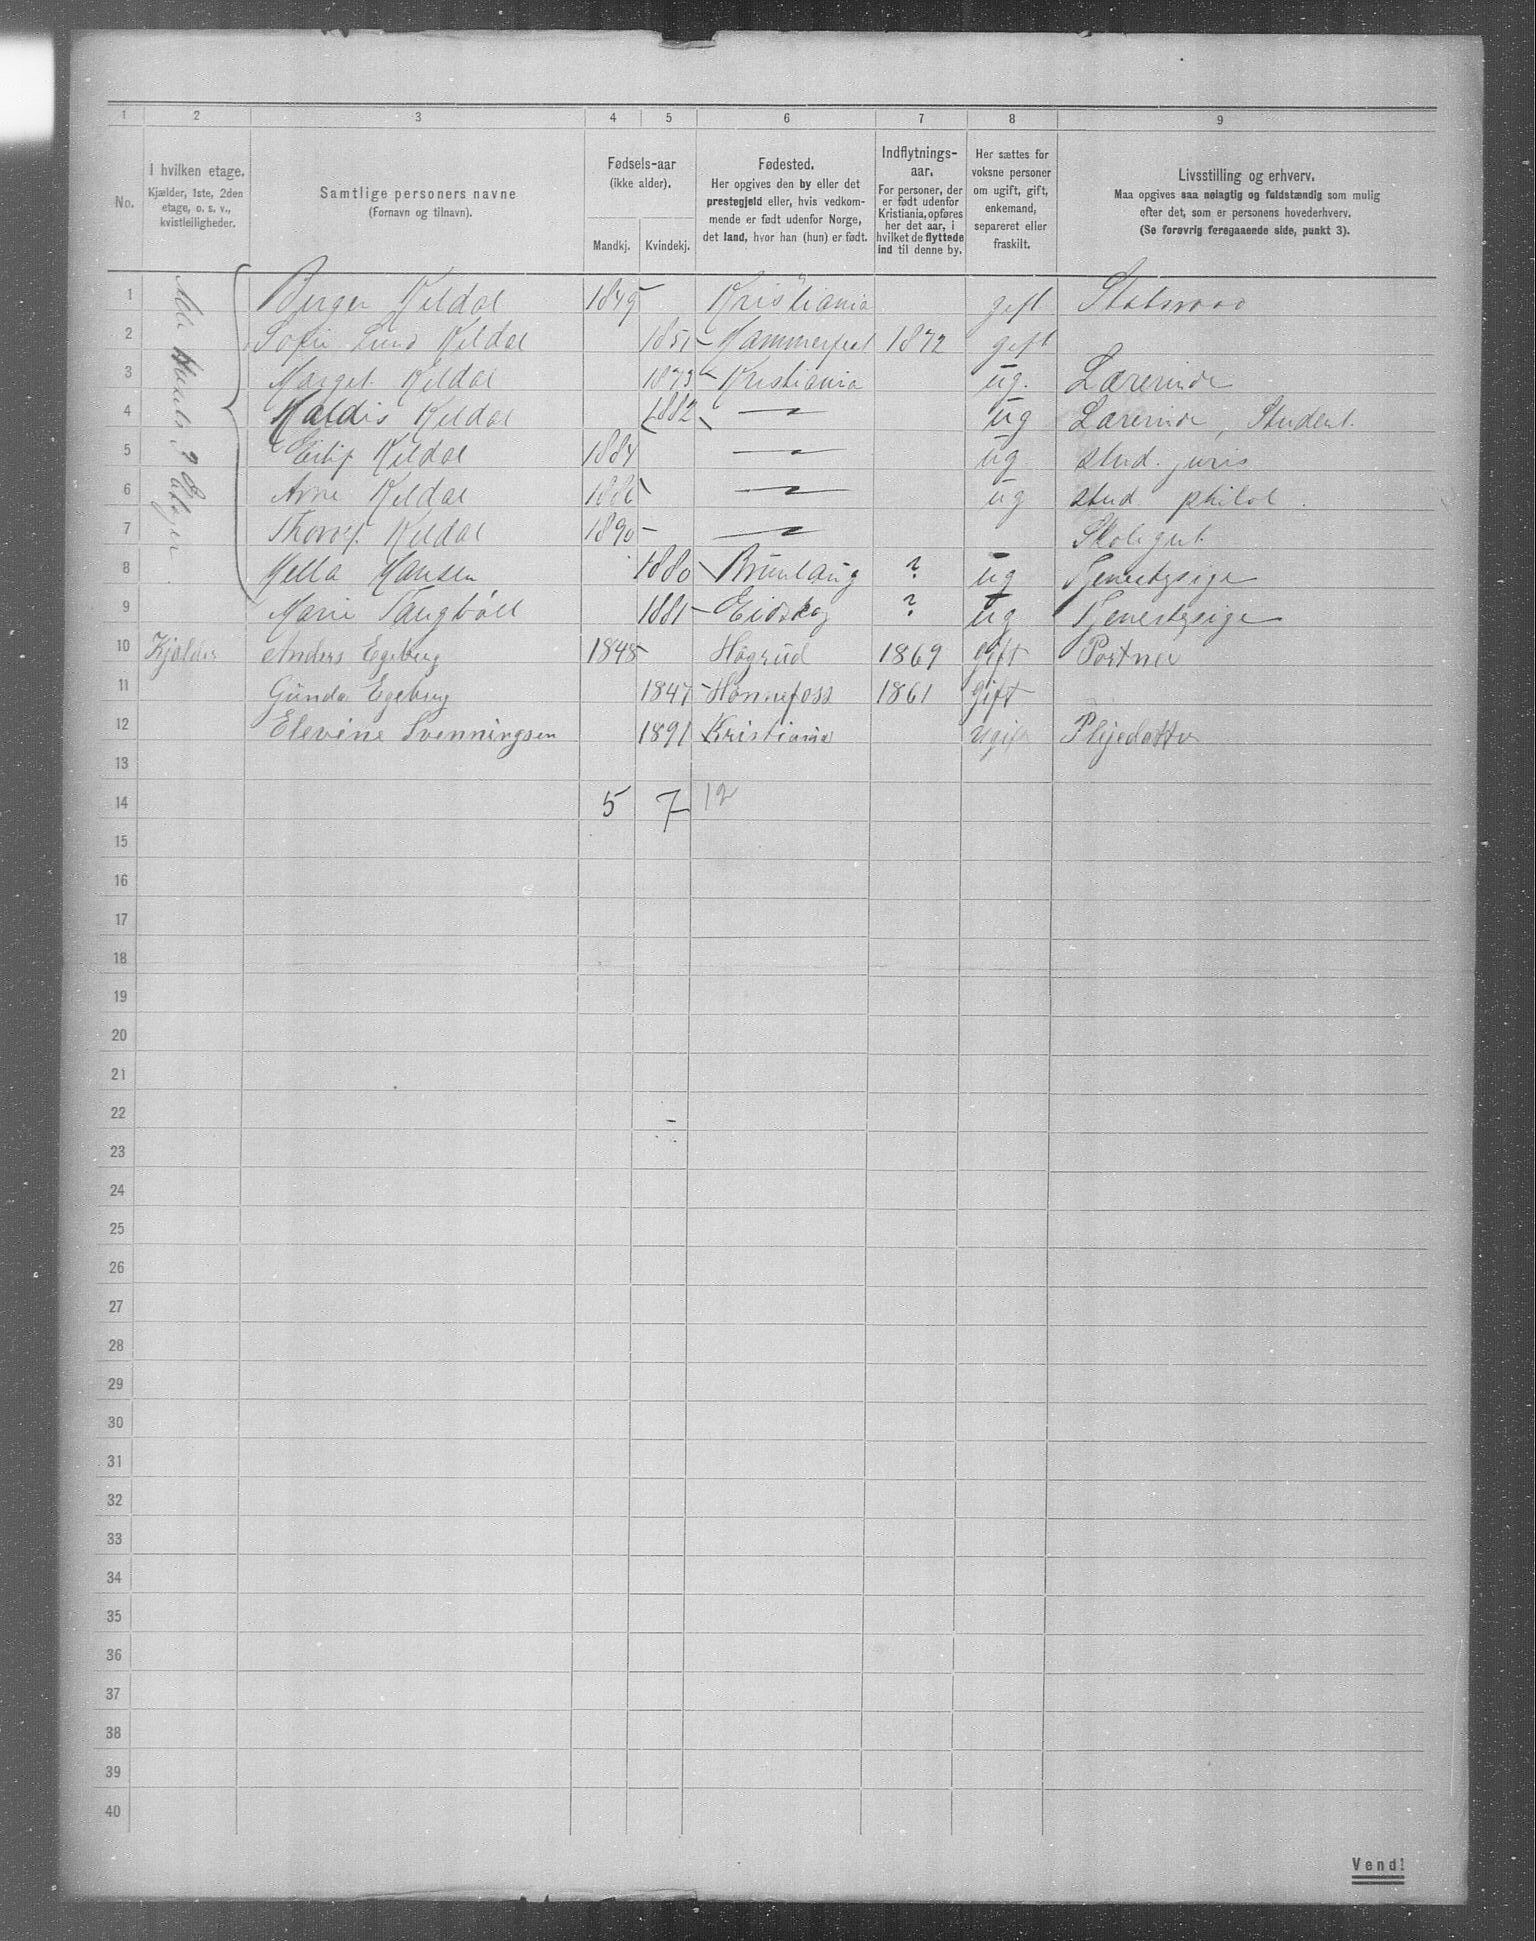 1 2 3 4 5 6 7 8 9
No.
I hvilken etage.
Kjælder, 1ste, 2den
etage, o. s. v.,
kvistleiligheder.
Samtlige personers navne
(Fornavn og tilnavn).
Fødsels-aar
(ikke alder).
Mandkj. Kvindekj.
Fødested.
Her opgives den by eller det
prestegjeld eller, hvis vedkom-
mende er født udenfor Norge,
det land, hvor han (hun) er født.
Indflytnings-
aar.
For personer, der
er født udenfor
Kristiania, opføres
her det aar, i
hvilket de flyttede
ind til denne by.
Her sættes for
voksne personer
om ugift, gift,
enkemand,
separeret eller
fraskilt.
Livsstilling og erhverv.
Maa opgives saa nøiagtig og fuldstændig som mulig
efter det, som er personens hovederhverv.
(Se forøvrig foregaaende side, punkt 3).
1 Birger Kildal 1849 Kristiania gift Statsraad
2 Sofie Lund Kildal 1851 Hammerfest 1872 gift
3 Margit Kildal 1873 Kristiania ug. Lærerinde
4 Kildal 1882 — ug Lærerinde, Student
5 Eilif Kildal 1884 — ug stud. juris
6 Arne Kildal 188 — ug stud philol.
7 Kildal 1890 — Skolegut
8 Hella Hansen 1880 Brunlaug ? ug Tjenestepige
9 Marie 1881 Eidskog ? ug Tjenestepige
10 Kjelder Anders Egeberg 1848 Hogrud 1869 Gift Portner
11 Gunda Egeberg 1847 Hønnefoss 1861 Gift
12 Elevine Svenningsen 1891 Kristiania ugift Plejedatter
13
14 5 7 12
15
16
17
18
19
20
21
22
23
24
25
26
27
28
29
30
31
32
33
34
35
36
37
38
39
40
Vend!